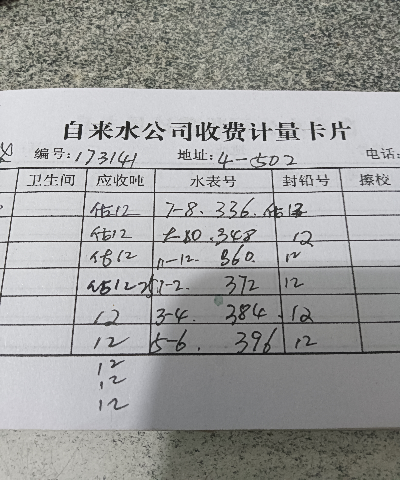 自来水公司收费计量卡片
编号:173141 地址:4-502 电话:
卫生间 应收吨 水表号 封铅号 擦校
估12 7-8. 336. 估12
估12 348 12
估12 11-12. 360. 12
估12 1-2. 372 12
12 3-4. 384. 12
12 5-6. 396 12
12
12
12